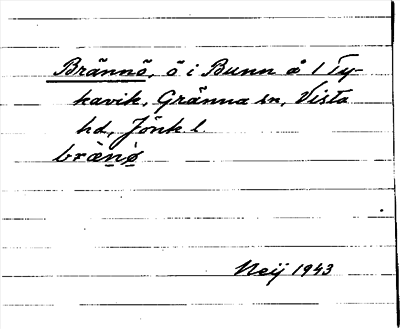 Brännö, ö i Bunn å 1 Ty-
kavik, Gränna sn, Vista
hd, Jönk. l
brän̠ö̠
Neij 1943